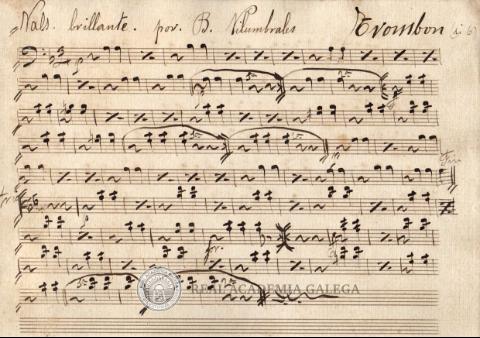 Vals. brillante. por. B. Vilumbrales Trombon
REAL ACADEMIA GALEGA